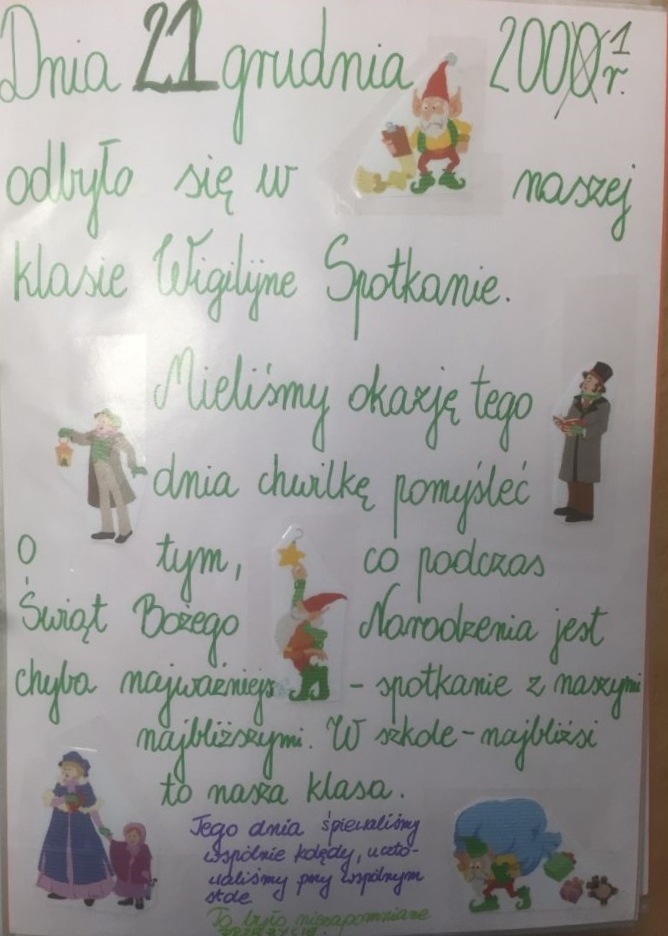 Dnia 21 grudnia 2001 r.
odbyło się w naszej
klasie Wigilijne Spotkanie.
Mieliśmy okazję tego
dnia chwilkę pomyśleć
o tym, co podczas
Świąt Bożego Narodzenia jest
chyba najważniejs - spotkanie z naszymi
najbliższymi. W szkole - najbliżsi
to nasza klasa.
Tego dnia śpiewaliśmy
wspólnie kolędy, uczto-
waliśmy przy wspólnym
stole.
To było niezapomniane